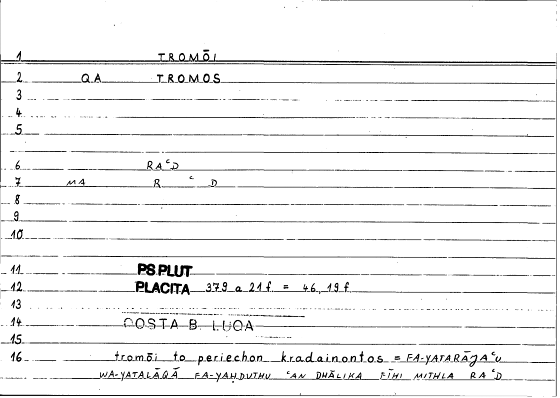 1 TROMŌI
2 QA TROMOS
3
4
5
6 RAᶜD
7 MA R ᶜ D
8
9
10
11 PS PLUT
12 PLACITA 379 a 21 f. = 46, 19 f.
13
14 COSTA B. LUQA
15
16 tromōi to periechon kradainontos = FA-YATARĀǦAᶜU
WA-YATALĀQĀ FA-YAḤDUTHU ᶜAN DHĀLIKA FĪHI MITHLA RAᶜD